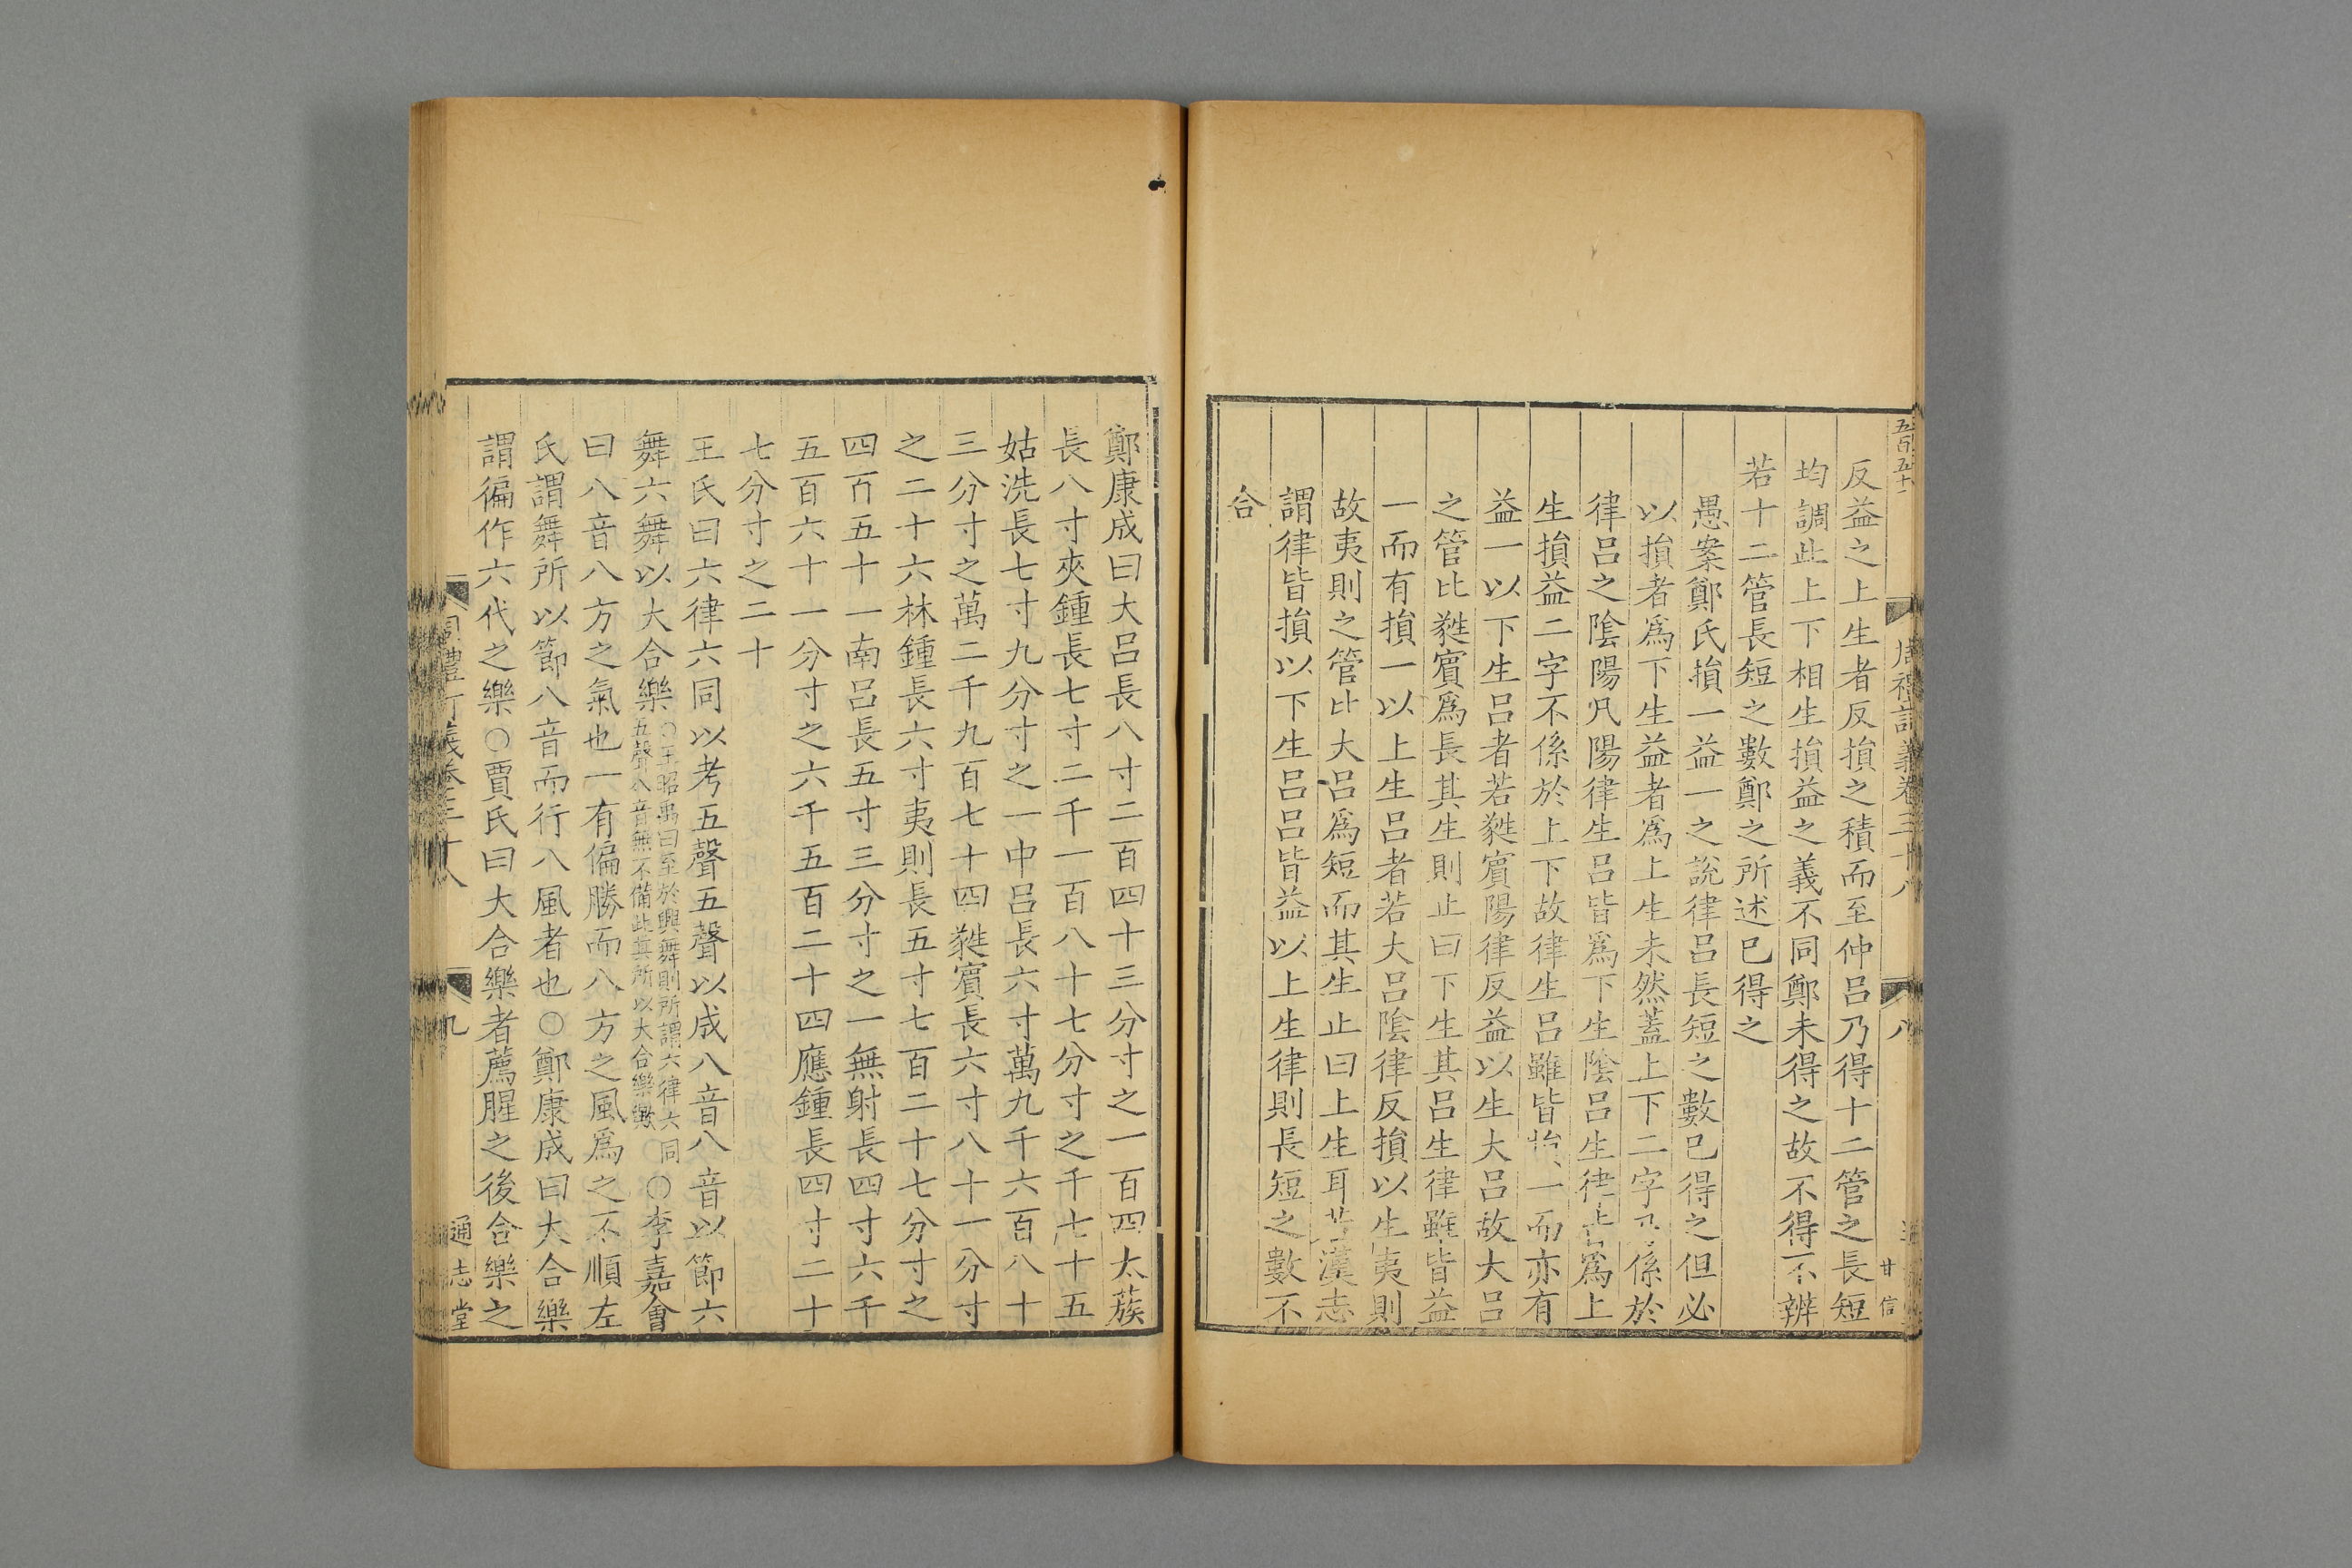 五百五十一
周禮訂義卷三十八
八
甘
信
反益之上生者反損之積而至仲呂乃得十二管之長短
均調此上下相生損益之義不同鄭未得之故不得不辨
若十二管長短之數鄭之所述已得之
愚案鄭氏損一益一之說律呂長短之數已得之但必
以損者爲下生益者爲上生未然蓋上下二字係於
律呂之陰陽凡陽律生呂皆爲下生陰呂生律皆爲上
生損益二字不係於上下故律生呂雖皆損一而亦有
益一以下生呂者若蕤賓陽律反益以生大呂故大呂
之管比蕤賓爲長其生則止曰下生其呂生律雖皆益
一而有損一以上生呂者若大呂陰律反損以生夷則
故夷則之管比大呂爲短而其生止曰上生耳若漢志
謂律皆損以下生呂呂皆益以上生律則長短之數不
合
鄭康成曰大呂長八寸二百四十三分寸之一百四太蔟
長八寸夾鍾長七寸二千一百八十七分寸之千七十五
姑洗長七寸九分寸之一中呂長六寸萬九千六百八十
三分寸之萬二千九百七十四蕤賓長六寸八十一分寸
之二十六林鍾長六寸夷則長五寸七百二十七分寸之
四百五十一南呂長五寸三分寸之一無射長四寸六千
五百六十一分寸之六千五百二十四應鍾長四寸二十
七分寸之二十
王氏曰六律六同以考五聲五聲以成八音八音以節六
舞六舞以大合樂○王昭禹曰至於興舞則所謂六律六同五聲八音無不備此其所以大合樂歟○李嘉會
曰八音八方之氣也一有偏勝而八方之風爲之不順左
氏謂舞所以節八音而行八風者也○鄭康成曰大合樂
謂徧作六代之樂○賈氏曰大合樂者薦腥之後合樂之
周禮訂義卷三十八
九
通志堂